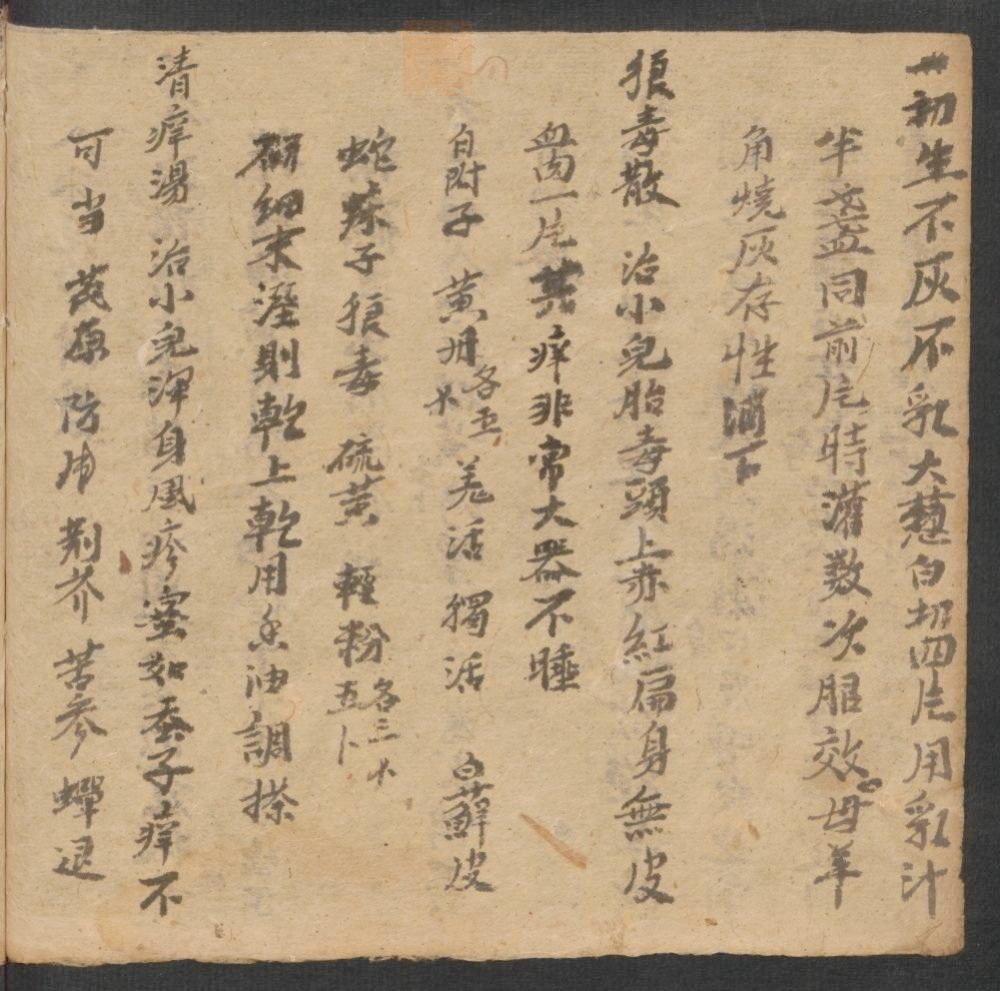 一初生不灰不乳大蔥白切四片用乳汁
半盞同前片時灌数次服效母羊
角燒灰存性酒下
狼毒散 治小兒胎毒頭上赤紅扁身無皮
血因一片其痒非常大器不睡
白附子 黄丹各五 羌活 獨活 白蘚皮
蛇床子 狼毒 硫黄 輕粉各三 五卜
研細末溼則乾上乾用香油調搽
清痒湯 治小兒渾身風疹蜜如蚕子痒不
可当 芪 防 荆芥 苦參 蟬退